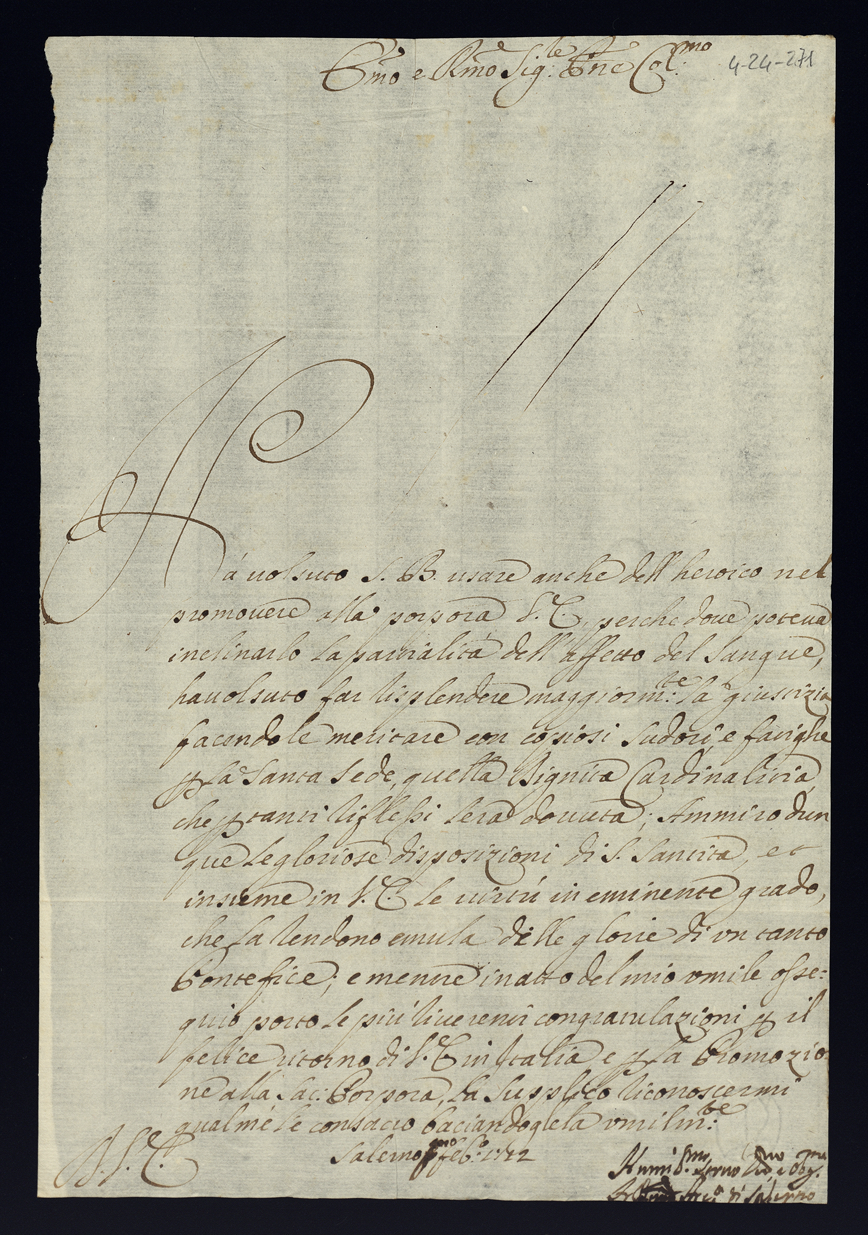 Em̃o e Rm̃o Sig.re P̃ne Col.mo
4-24-271
Há uolsuto S. B. usare anche dell'heroico nel
promouere alla porpora V. E., perche doue poteua
inclinarlo la parzialitá dell'affetto del Sangue,
há uolsuto far risplendere maggiorm.te la giustizia
facendole meritare con copiosi sudori, e fatighe
p la Santa Sede, quella Dignitá Cardinalitia,
che p tanti riflessi l'era douuta; Ammiro dun
que le gloriose disposizioni di S. Santitá, et
insieme in V. E. le uirtú in eminente grado,
che la rendono emula delle glorie di un tanto
Pontefice; e mentre in atto del mio vmile osse:
quio porto le piú riuerenti congratulazioni p il
felice ritorno di V. E. in Italia e p la Promozio
ne alla Sac: Porpora, la supplico riconoscermi
qual mé le consacro baciandogliela vmilm.te
Salerno pmo feb.o 1712
B. V. E.
Humil.mo Seruo Diu.mo Obg.mo
Arciu.o di Salerno